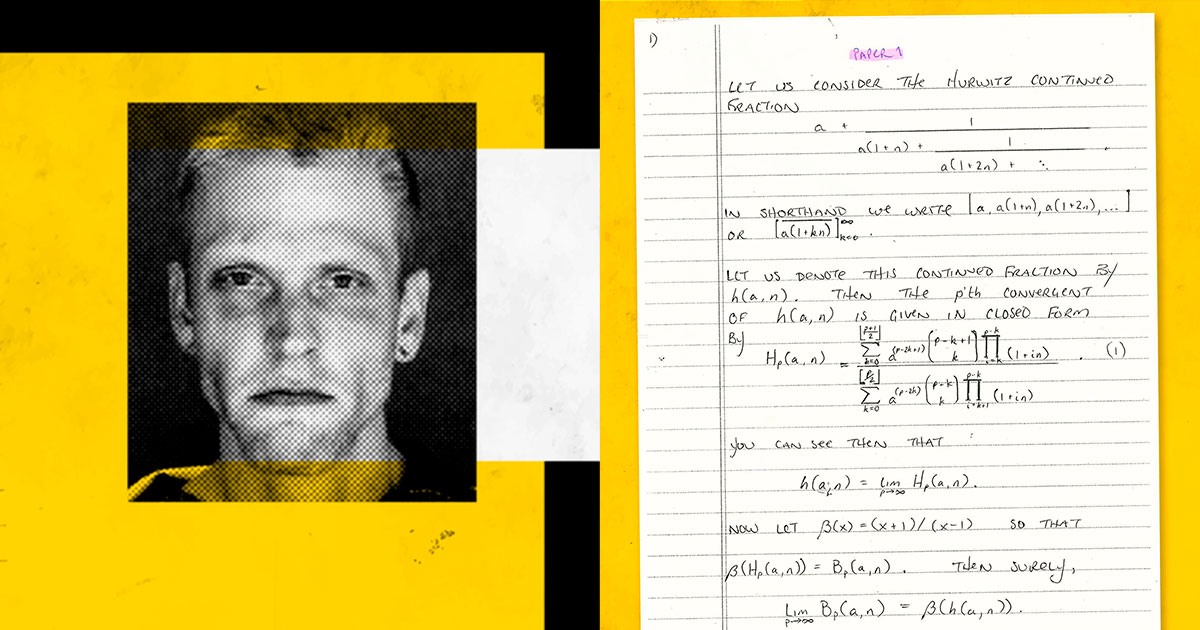 1)
PAPER 1
LET US CONSIDER THE HURWITZ CONTINUED
FRACTION
a + 1
a(1+n) + 1
a(1+2n) + ⋱ .
IN SHORTHAND WE WRITE [a, a(1+n), a(1+2n), ...]
OR [a(1+kn)]_{k=0}^{∞} .
LET US DENOTE THIS CONTINUED FRACTION BY
h(a,n). THEN THE p'th CONVERGENT
OF h(a,n) IS GIVEN IN CLOSED FORM
BY
H_p(a,n) = \frac{\sum_{k=0}^{[\frac{p+1}{2}]} a^{(p-2k+1)} \binom{p-k+1}{k} \prod_{i=k}^{p-k} (1+in)}{\sum_{k=0}^{[p/2]} a^{(p-2k)} \binom{p-k}{k} \prod_{i=k+1}^{p-k} (1+in)} . (1)
YOU CAN SEE THEN THAT :
h(a,n) = lim_{p→∞} H_p(a,n).
NOW LET β(x) = (x+1)/(x-1) SO THAT
β(H_p(a,n)) = B_p(a,n). THEN SURELY,
Lim_{p→∞} B_p(a,n) = β(h(a,n)).